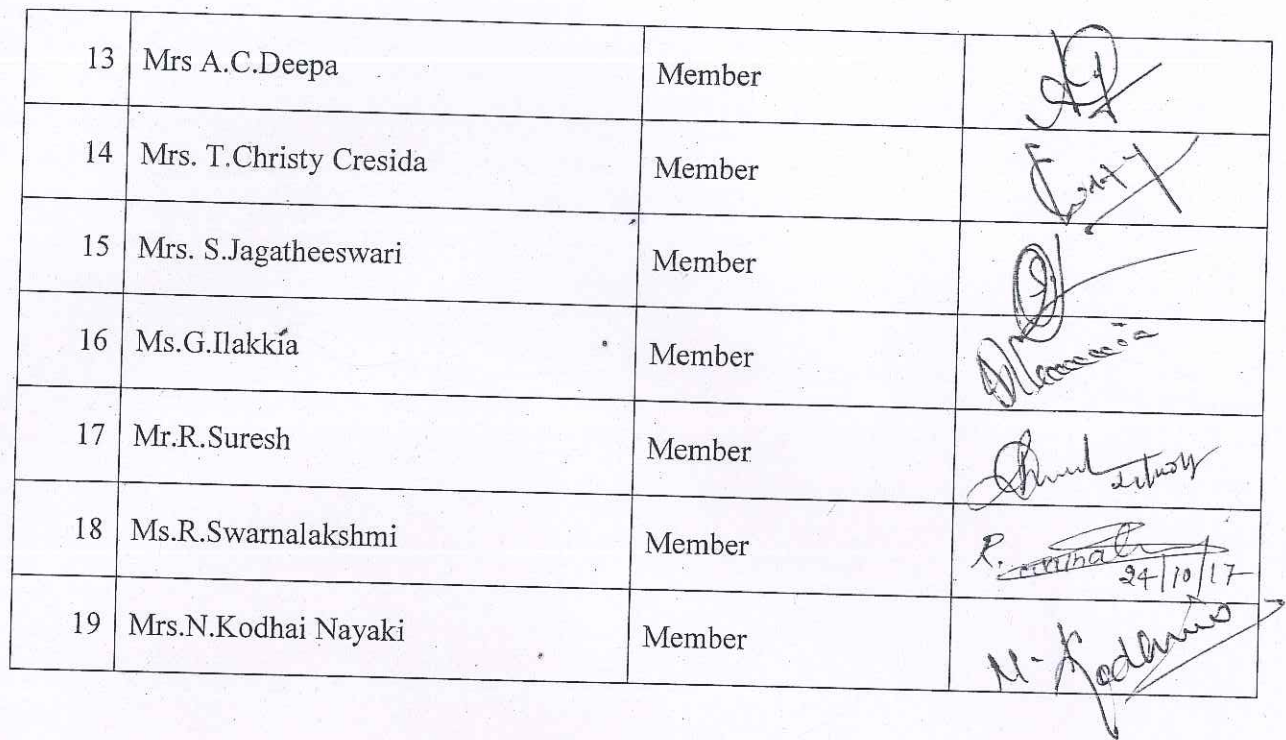 13 Mrs A.C.Deepa Member
14 Mrs. T.Christy Cresida Member
15 Mrs. S.Jagatheeswari Member
16 Ms.G.Ilakkia Member
17 Mr.R.Suresh Member
18 Ms.R.Swarnalakshmi Member R.
24/10/17
19 Mrs.N.Kodhai Nayaki Member